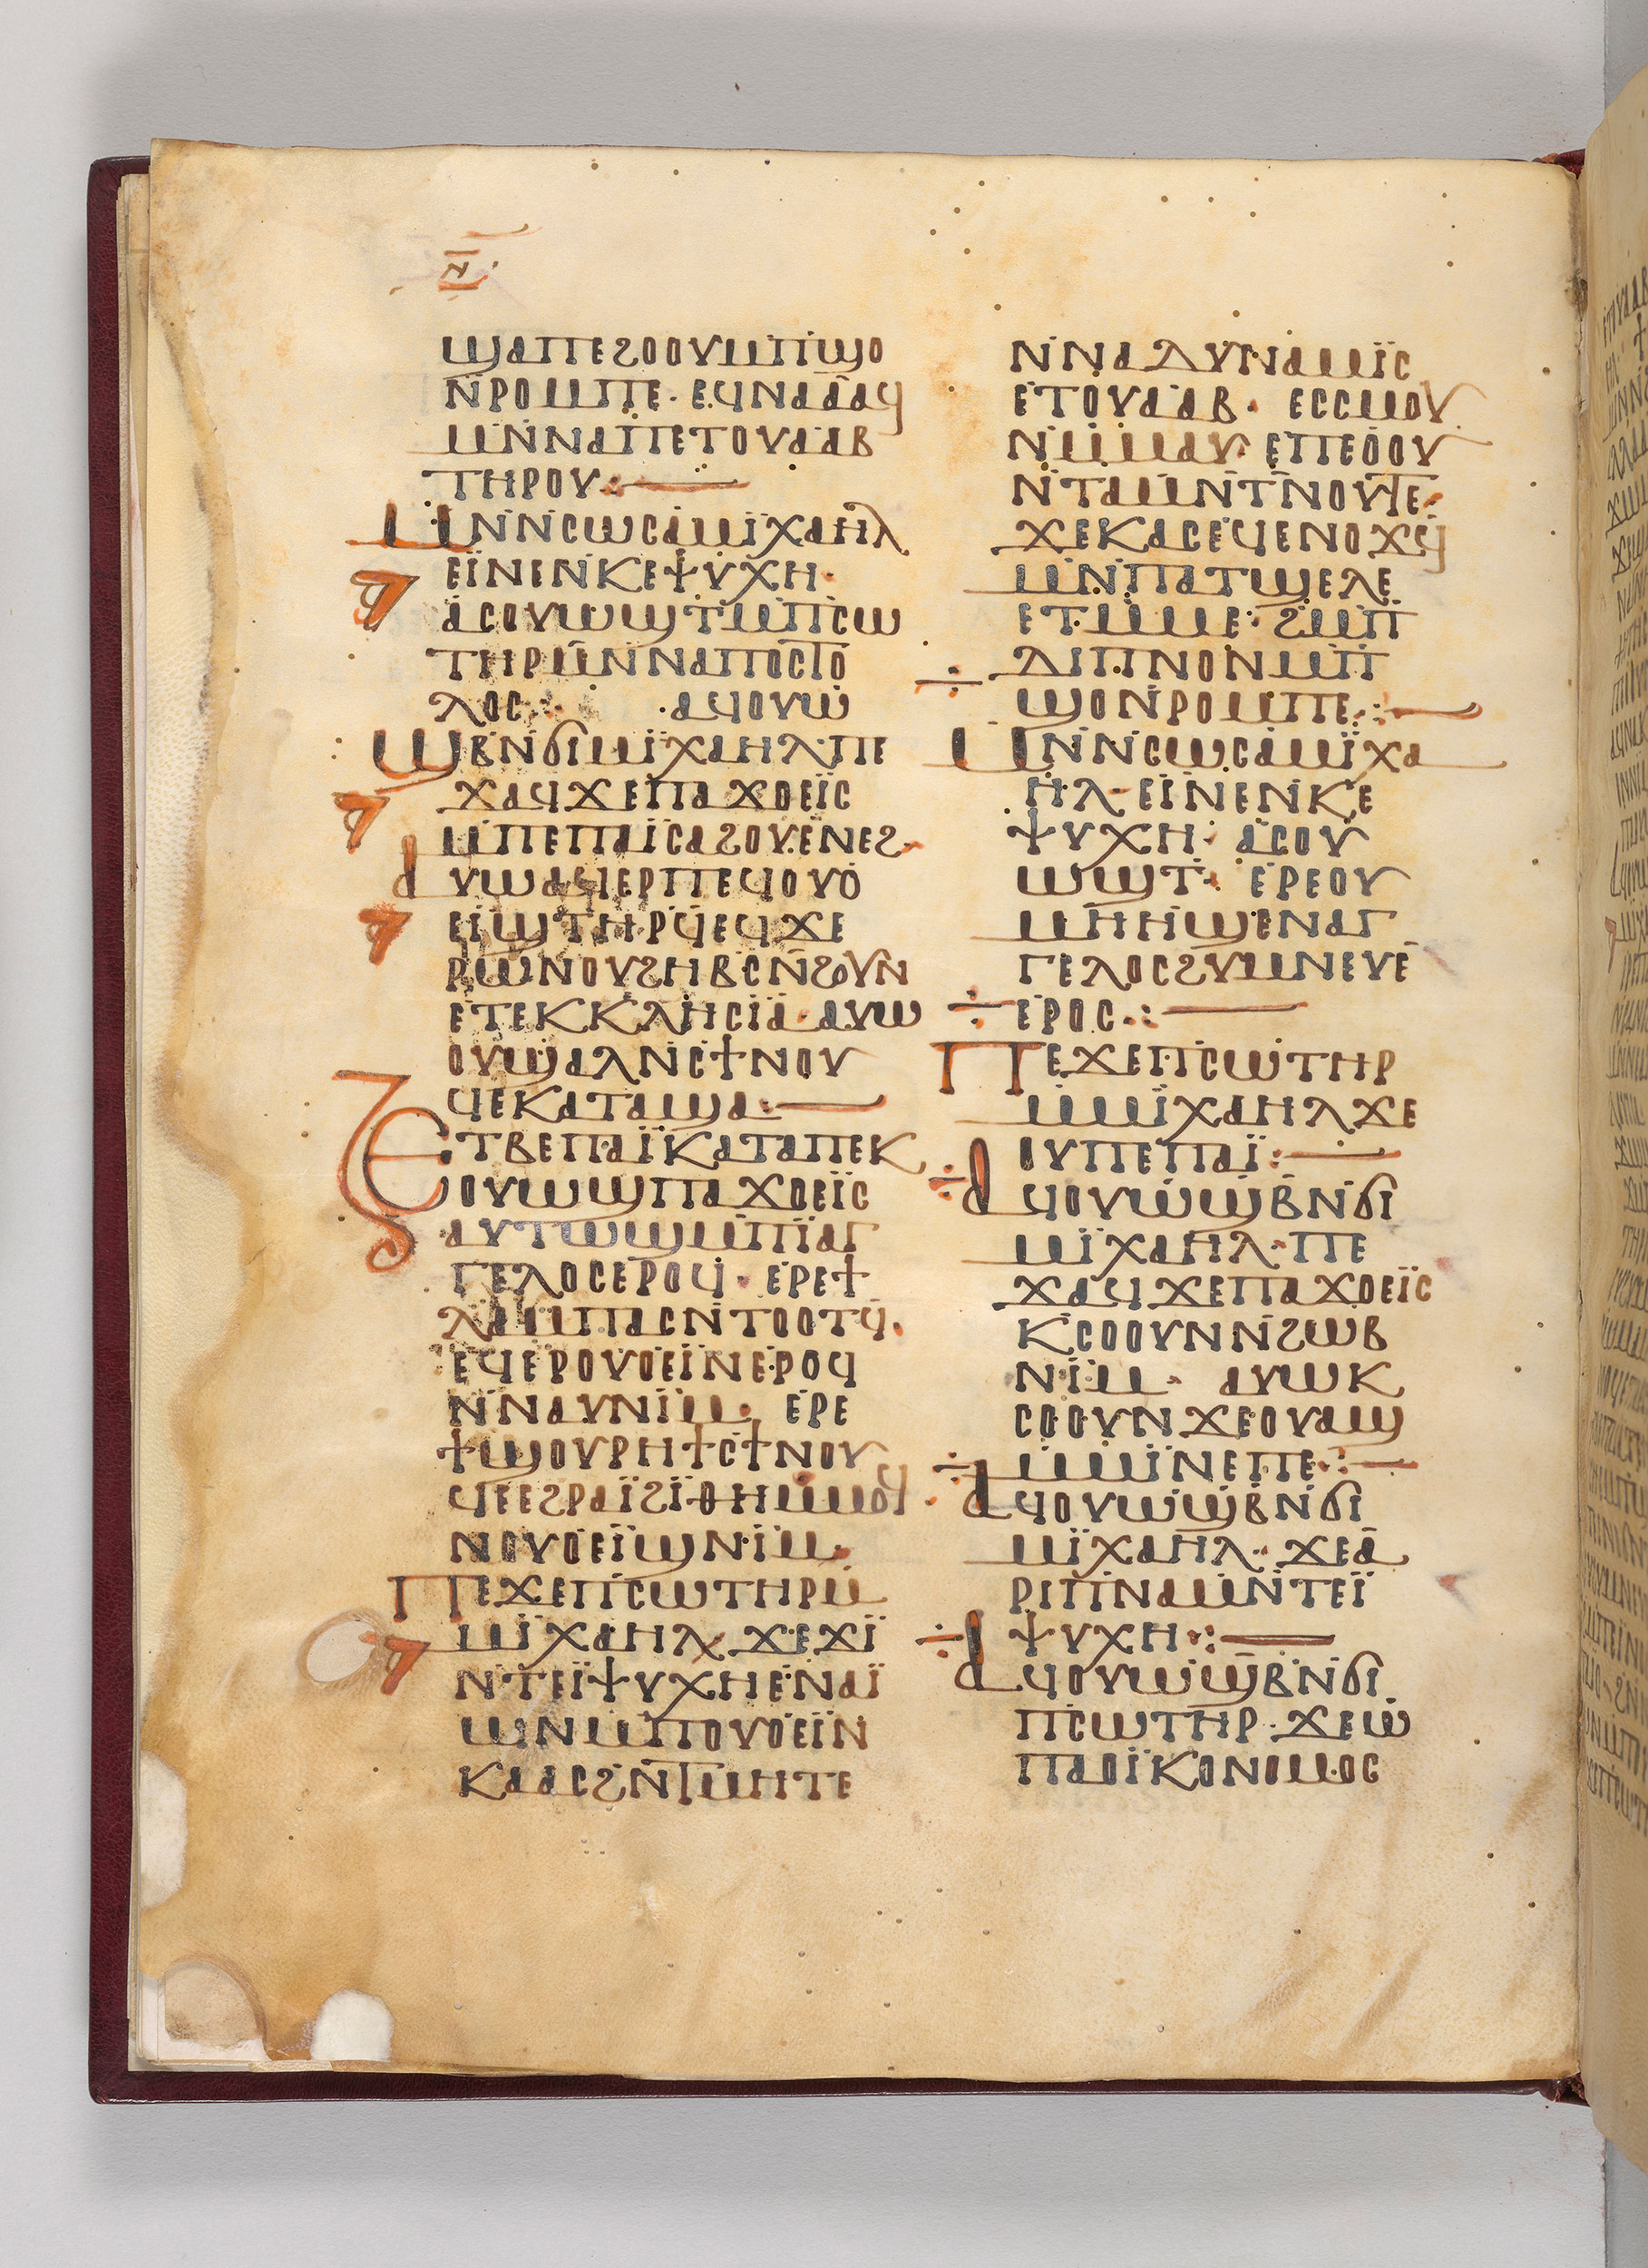 ⲛ̄
ϣⲁⲡⲉϩⲟⲟⲩⲙ̇ⲡϣⲟ
ⲛ̇ⲣⲟⲙⲡⲉ· ⲉϥⲛⲁⲁ̇ⲁϥ
ⲙⲛ̇ⲛⲁⲡⲉⲧⲟⲩⲁⲁⲃ
ⲧⲏⲣⲟⲩ:—
ⲙⲛ̇ⲛ̇ⲥⲱⲥⲁⲙⲓ̈ⲭⲁⲏⲗ
ⲉⲓ̈ⲛⲉⲛ̇ⲕⲉⲯⲩⲭⲏ·
ⲁⲥⲟⲩⲱϣⲧ̇ⲙ̇ⲡⲥⲱ
ⲧⲏⲣⲙ̄ⲛⲛⲁⲡⲟⲥⲧⲟ
ⲗⲟⲥ: ·ⲁϥⲟⲩⲱ̇
ϣⲃ̇ⲛ̇ϭⲓⲙⲓ̈ⲭⲁⲏⲗ·ⲡⲉ
ϫⲁϥϫⲉⲡⲁϫⲟⲉⲓ̈ⲥ
ⲙ̇ⲡⲉⲡⲁⲓ̈ⲥⲁϩⲟⲩ·ⲉ̇ⲛⲉϩ·
ⲁⲩⲱⲁϥⲉⲣⲡⲉϥⲟⲩⲟ̇
ⲉⲓ̈ϣⲧⲏⲣϥ̇ⲉϥϫⲉ
ⲣⲱ̇ⲛⲟⲩϩⲏⲃ̇ⲥⲛ̄ϩⲟⲩⲛ
ⲉⲧⲉⲕⲕⲗⲏⲥⲓ̈ⲁ· ⲁⲩⲱ
ⲟⲩϣⲁⲗⲛ̇ⲥϯⲛⲟⲩ
ϥⲉⲕⲁⲧⲁϣⲁ:—
ⲉⲧⲃⲉⲡⲁⲓ̈ⲕⲁⲧⲁⲡⲉⲕ
ⲟⲩⲱϣⲡⲁϫⲟⲉⲓ̈ⲥ
ⲁⲩⲧⲱϣⲙ̇ⲡⲓ̈ⲁⲅ
ⲅⲉⲗⲟⲥⲉⲣⲟϥ· ⲉⲣⲉϯ
ⲗⲁⲙⲡⲁⲥⲛ̇ⲧⲟⲟⲧϥ̇·
ⲉϥⲉⲣⲟⲩⲟⲉⲓ̈ⲛⲉ·ⲣⲟϥ
ⲛ̇ⲛⲁⲩⲛⲓ̈ⲙ· ⲉⲣⲉ
ϯϣⲟⲩⲣⲏϯⲥϯⲛⲟⲩ
ϥⲉⲉϩⲣⲁⲓ̈ϩⲓ̈ⲑⲏⲙⲙⲟϥ
ⲛⲟⲩⲟⲉⲓ̈ϣⲛⲓ̈ⲙ·
ⲡⲉϫⲉⲡⲥⲱⲧⲏⲣⲙ̇
ⲙⲓ̈ⲭⲁⲏⲗ ϫⲉϫⲓ̈
ⲛ̇ⲧⲉⲓ̈ⲯⲩⲭⲏⲉ̇ⲛⲁⲓ̈
ⲱⲛⲙ̇ⲡⲟⲩⲟⲉⲓ̈ⲛ
ⲕⲁⲁⲥϩⲛ̄ⲧⲙⲏⲧⲉ
ⲛ̇ⲛⲁⲇⲩⲛⲁⲙⲓ̈ⲥ
ⲉⲧⲟⲩⲁⲁⲃ· ⲉⲥⲥⲙⲟⲩ
ⲛ̇ⲙ̇ⲙⲁⲩ· ⲉⲡⲉⲟⲟⲩ
ⲛ̇ⲧⲁⲙⲛ̄ⲧⲛⲟⲩⲧⲉ·
ϫⲉⲕⲁⲥⲉϥⲉⲛⲟϫϥ
ⲙⲛ̇ⲡⲁⲧϣⲉⲗⲉ
ⲉⲧ·ⲙ̇ⲙⲉ: ϩⲙ̇ⲡ
ⲇⲓⲡⲛⲟⲛⲙ̇ⲡ
ϣⲟⲛ̇ⲣⲟⲙⲡⲉ:—
ⲙⲛ̇ⲛ̇ⲥⲱⲥⲁⲙⲓ̈ⲭⲁ
ⲏⲗ· ⲉⲓ̈ⲛⲉⲛ̇ⲕⲉ
ⲯⲩⲭⲏ· ⲁⲥⲟⲩ
ⲱϣⲧ̇· ⲉⲣⲉⲟⲩ
ⲙⲏⲏϣⲉⲛⲁⲅ
ⲅⲉⲗⲟⲥϩⲩⲙⲛⲉⲩⲉ̇
ⲉⲣⲟⲥ·:—
ⲡⲉϫⲉⲡⲥⲱⲧⲏⲣ
ⲙ̇ⲙⲓ̈ⲭⲁⲏⲗϫⲉ
ⲟⲩⲡⲉⲡⲁⲓ̈:—
ⲁϥⲟⲩⲱ̇ϣ̇ⲃ̇ⲛ̇ϭⲓ
ⲙⲓ̈ⲭⲁⲏⲗ·ⲡⲉ
ϫⲁϥϫⲉⲡⲁϫⲟⲉⲓ̈ⲥ
ⲕⲥⲟⲟⲩⲛⲛ̇ϩⲱⲃ
ⲛⲓ̈ⲙ· ⲁⲩⲱⲕ
ⲥⲟⲟⲩⲛϫⲉⲟⲩⲁϣ
ⲙ̇ⲙⲓ̈ⲛⲉⲡⲉ:—
ⲁϥⲟⲩⲱ̇ϣ̇ⲃ̇ⲛ̇ϭⲓ
ⲙⲓ̈ⲭⲁⲏⲗ· ϫⲉⲁ̇
ⲣⲓⲡⲛⲁⲙⲛ̇ⲧⲉⲓ̈
ⲯⲩⲭⲏ·:—
ⲁϥⲟⲩⲱϣ̇ⲃ̇ⲛ̇ϭⲓ
ⲡⲥⲱⲧⲏⲣ·ϫⲉⲱ̇
ⲡⲁⲟⲓ̈ⲕⲟⲛⲟⲙⲟⲥ